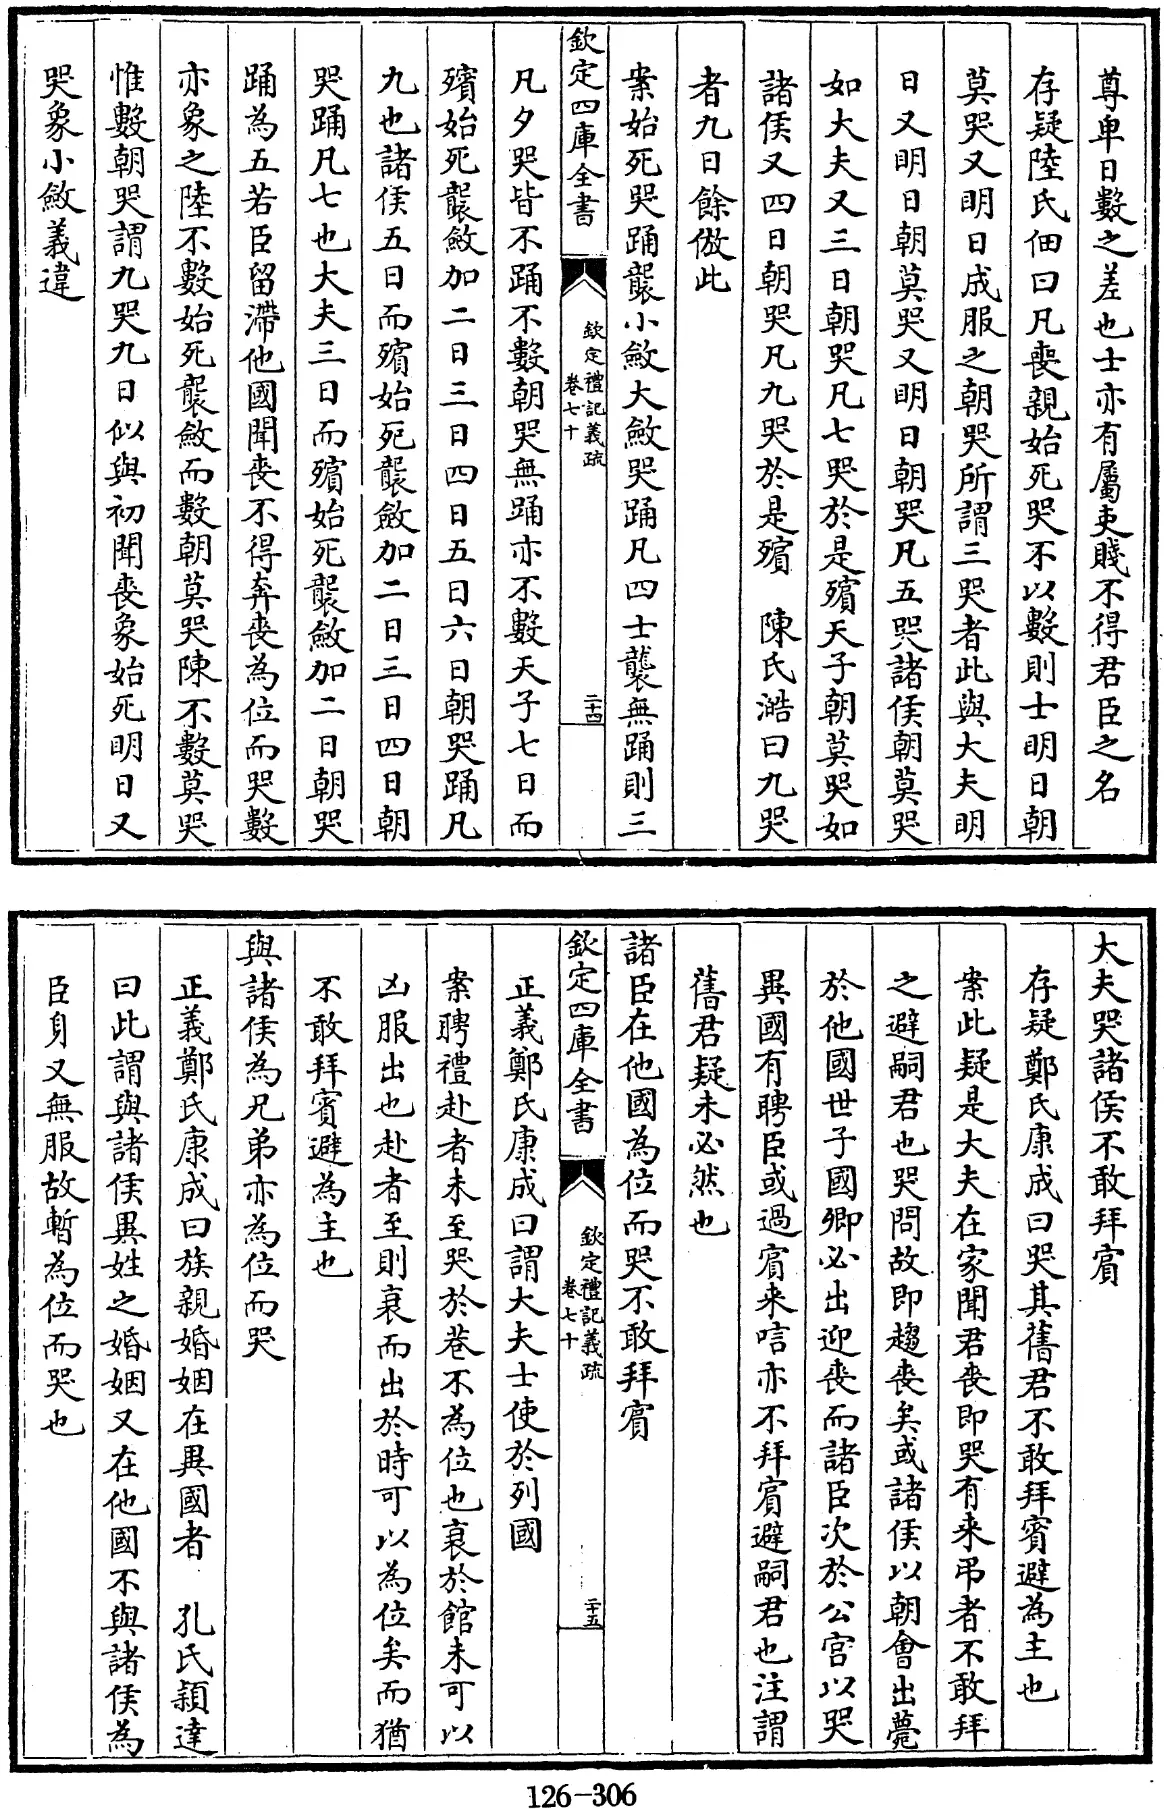 尊卑日數之差也士亦有屬吏賤不得君臣之名
存疑陸氏佃曰凡喪親始死哭不以數則士明日朝
莫哭又明日成服之朝哭所謂三哭者此與大夫明
日又明日朝莫哭又明日朝哭凡五哭諸侯朝莫哭
如大夫又三日朝哭凡七哭於是殯天子朝莫哭如
諸侯又四日朝哭凡九哭於是殯 陳氏澔曰九哭
者九日餘倣此
案始死哭踊襲小斂大斂哭踊凡四士襲無踊則三
欽定四庫全書
欽定禮記義疏
卷七十
二十四
凡夕哭皆不踊不數朝哭無踊亦不數天子七日而
殯始死襲斂加二日三日四日五日六日朝哭踊凡
九也諸侯五日而殯始死襲斂加二日三日四日朝
哭踊凡七也大夫三日而殯始死襲斂加二日朝哭
踊為五若臣留滯他國聞喪不得奔喪為位而哭數
亦象之陸不數始死襲斂而數朝莫哭陳不數莫哭
惟數朝哭謂九哭九日似與初聞喪象始死明日又
哭象小斂義違
大夫哭諸侯不敢拜賓
存疑鄭氏康成曰哭其舊君不敢拜賓避為主也
案此疑是大夫在家聞君喪即哭有来弔者不敢拜
之避嗣君也哭問故即趨喪矣或諸侯以朝會出薨
於他國世子國卿必出迎喪而諸臣次於公宮以哭
異國有聘臣或過賓来唁亦不拜賓避嗣君也注謂
舊君疑未必然也
諸臣在他國為位而哭不敢拜賓
欽定四庫全書
欽定禮記義疏
卷七十
二十五
正義鄭氏康成曰謂大夫士使於列國
案聘禮赴者未至哭於巷不為位也衰於館未可以
凶服出也赴者至則衰而出於時可以為位矣而猶
不敢拜賓避為主也
與諸侯為兄弟亦為位而哭
正義鄭氏康成曰族親婚姻在異國者 孔氏穎達
曰此謂與諸侯異姓之婚姻又在他國不與諸侯為
臣身又無服故暫為位而哭也
126-306